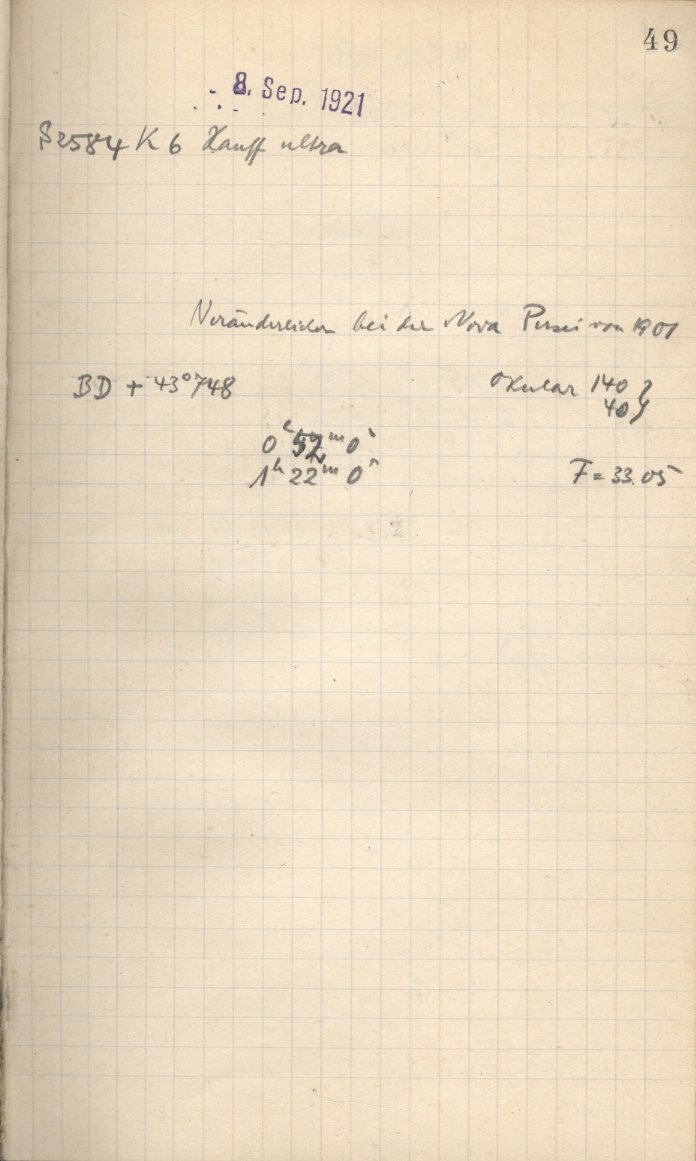 49
8. Sep. 1921
S2584 K 6 Hauff ultra
Veränderlicher bei der Nova Persei von 1901
BD + 43°748
Okular 140 }
40 }
0ʰ 52ᵐ 0ˢ
1ʰ 22ᵐ 0ˢ
F = 33.05